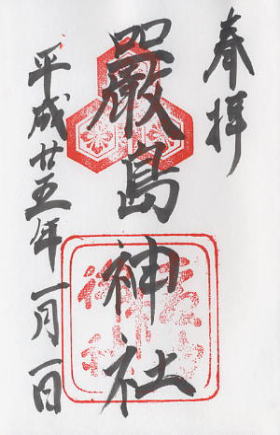 奉拝
嚴島神社
平成廿五年一月一日